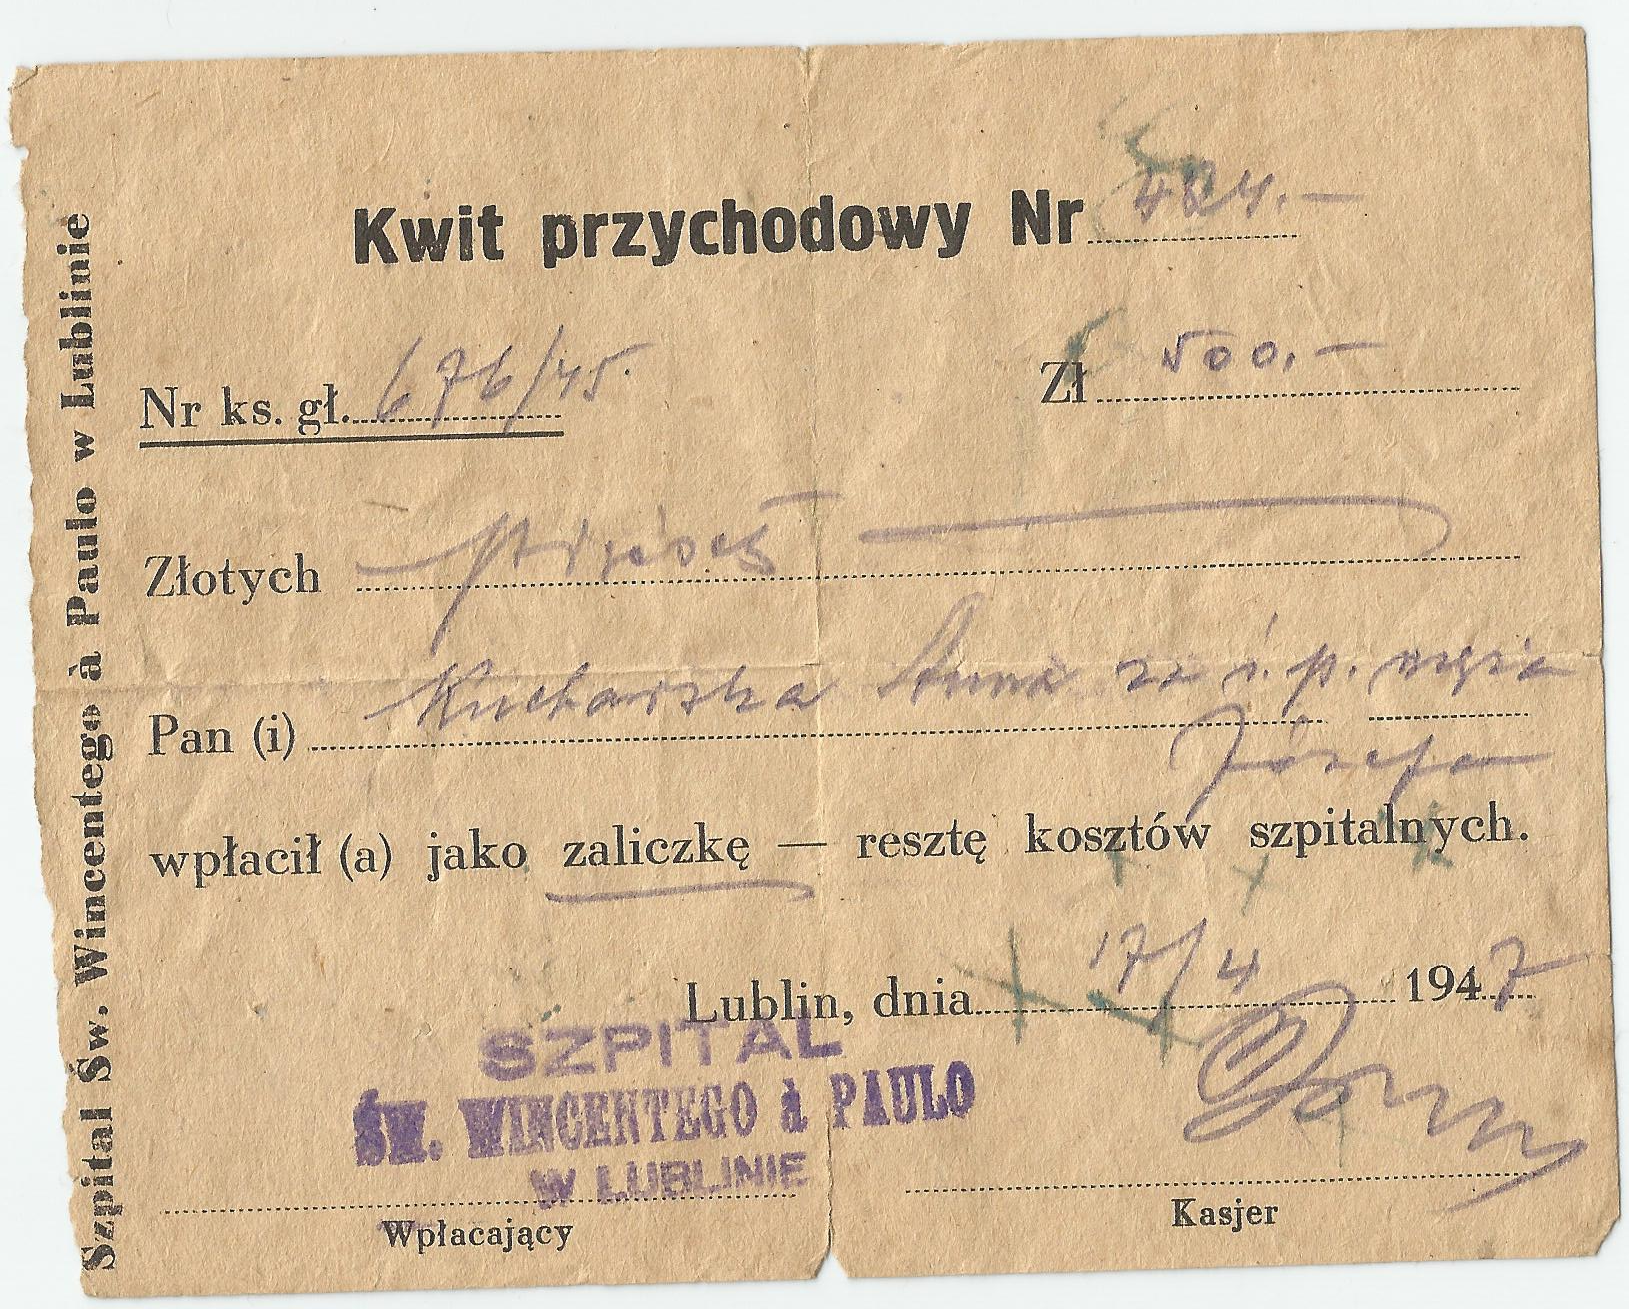 Szpital Św. Wincentego à Paulo w Lublinie
Kwit przychodowy Nr 424.—
Nr ks. gł. 676/45.
Zł 500.—
Złotych pięćset
Pan (i) Kucharska Anna za ś. p. męża
Józefa
wpłacił (a) jako zaliczkę — resztę kosztów szpitalnych.
Lublin, dnia 17/4 1947
SZPITAL
ŚW. WINCENTEGO à PAULO
W LUBLINIE
Wpłacający
Kasjer